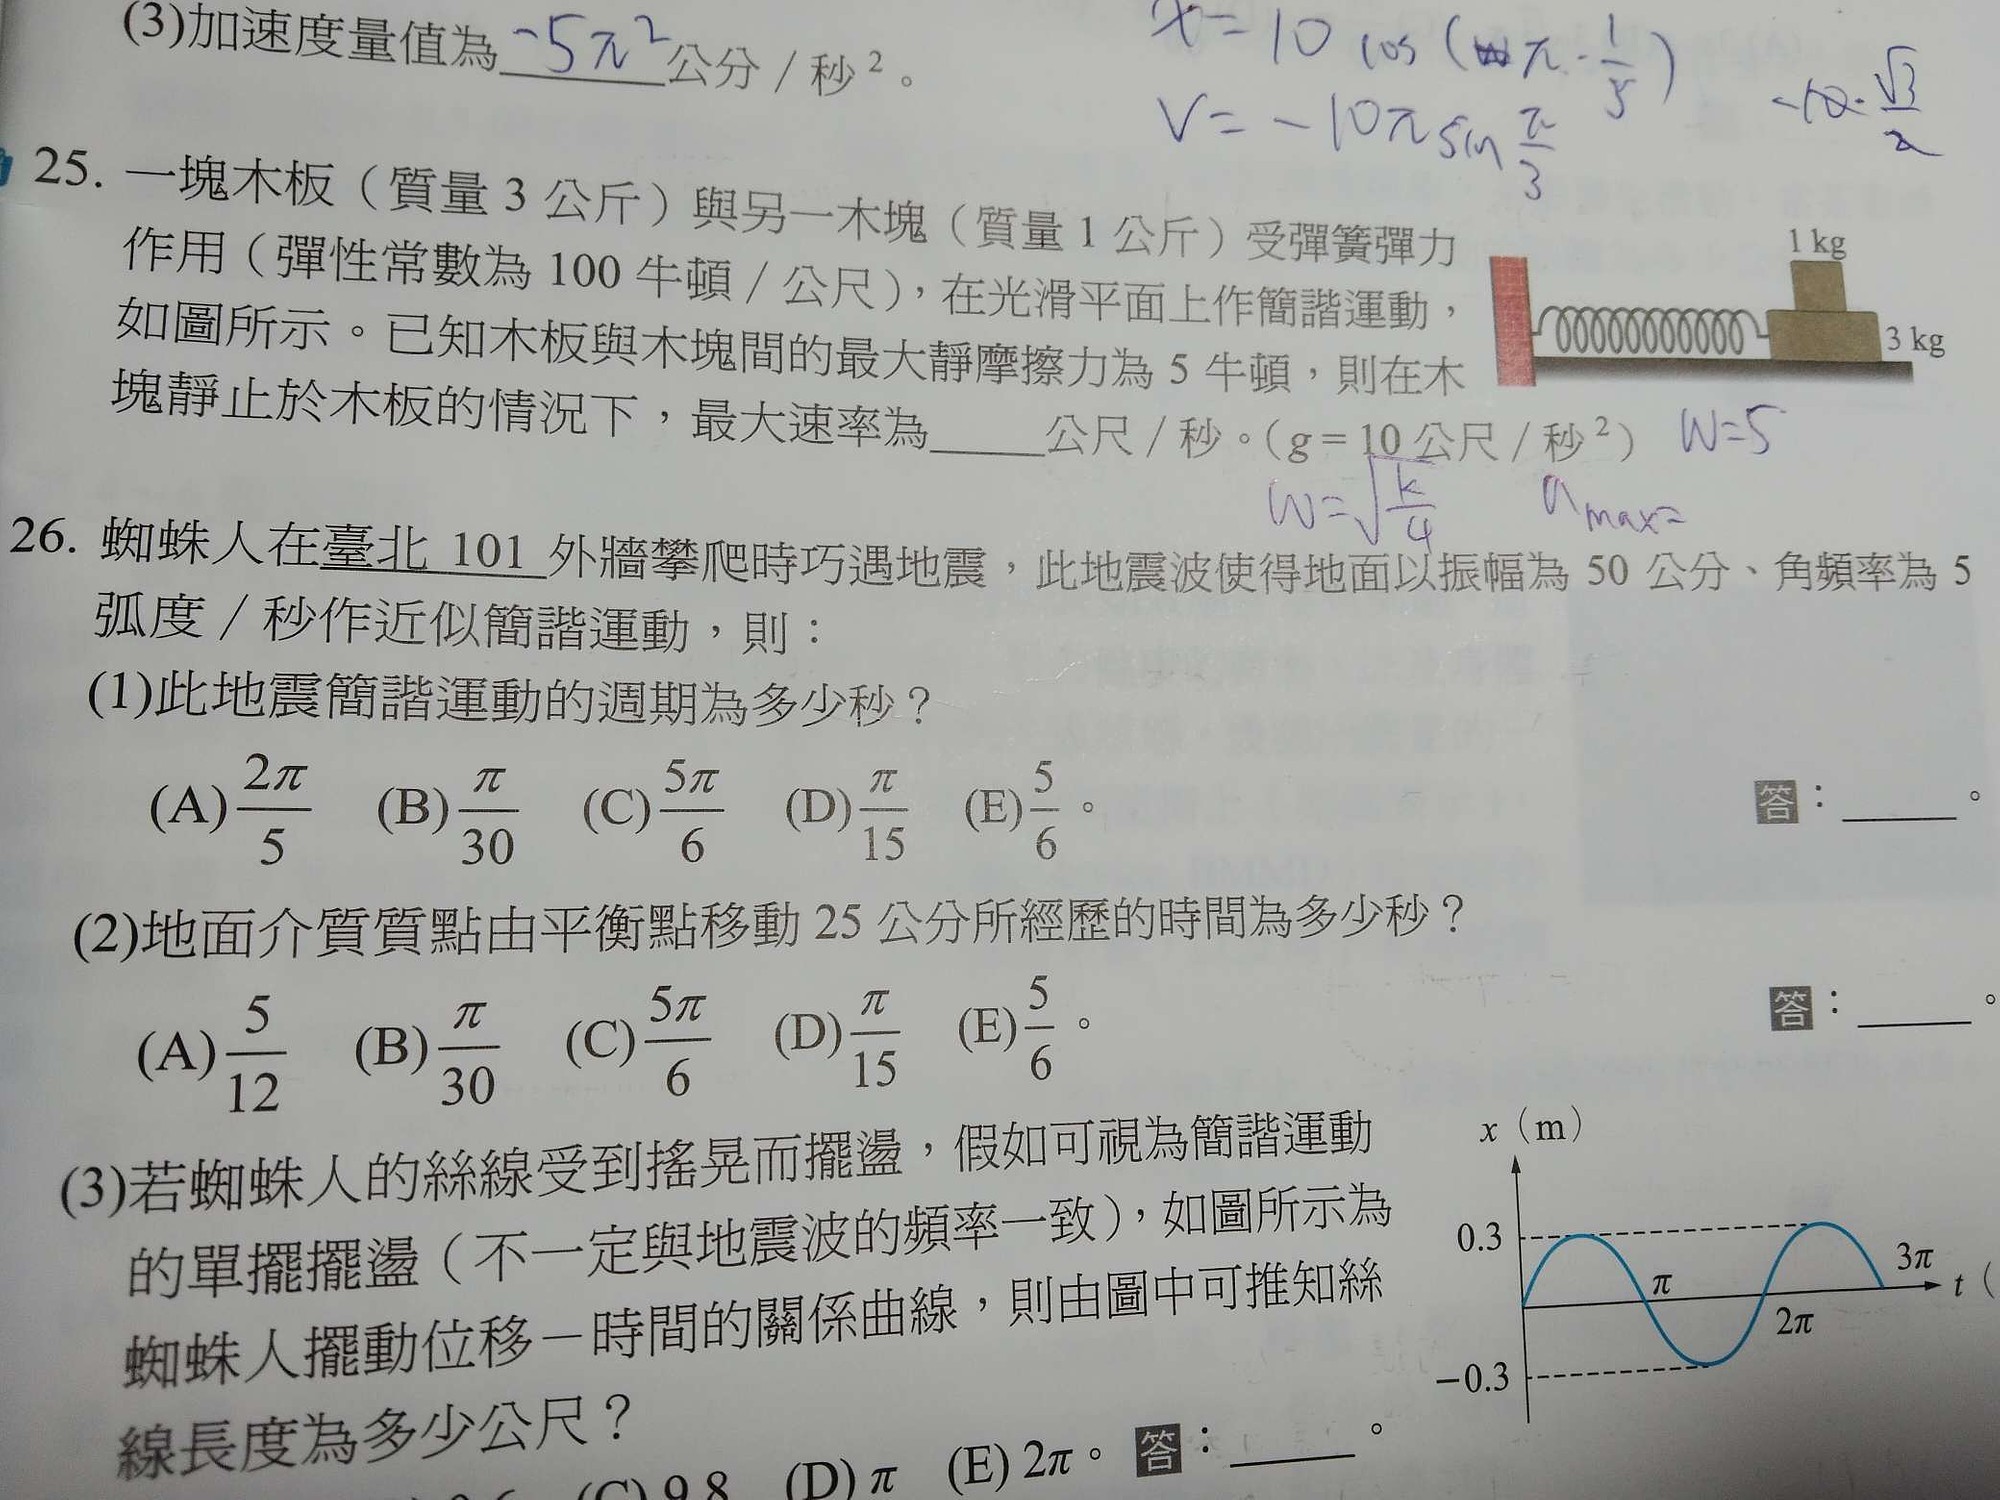 (3)加速度量值為 -5π² 公分／秒²。
x = 10 cos ( π · 1/5 )
V = -10π sin π/3
-10 · √3/2
25. 一塊木板（質量 3 公斤）與另一木塊（質量 1 公斤）受彈簧彈力
作用（彈性常數為 100 牛頓／公尺），在光滑平面上作簡諧運動，
如圖所示。已知木板與木塊間的最大靜摩擦力為 5 牛頓，則在木
塊靜止於木板的情況下，最大速率為____公尺／秒。（g = 10 公尺／秒²）
1 kg
3 kg
W=5
W=√k/4
a max=
26. 蜘蛛人在臺北 101 外牆攀爬時巧遇地震，此地震波使得地面以振幅為 50 公分、角頻率為 5
弧度／秒作近似簡諧運動，則：
(1)此地震簡諧運動的週期為多少秒？
(A) 2π/5 (B) π/30 (C) 5π/6 (D) π/15 (E) 5/6 。 答：____。
(2)地面介質質點由平衡點移動 25 公分所經歷的時間為多少秒？
(A) 5/12 (B) π/30 (C) 5π/6 (D) π/15 (E) 5/6 。 答：____。
(3)若蜘蛛人的絲線受到搖晃而擺盪，假如可視為簡諧運動
的單擺擺盪（不一定與地震波的頻率一致），如圖所示為
蜘蛛人擺動位移－時間的關係曲線，則由圖中可推知絲
線長度為多少公尺？
(C) 9.8 (D) π (E) 2π。 答：____。
x（m）
0.3
π
2π
3π
t（
−0.3